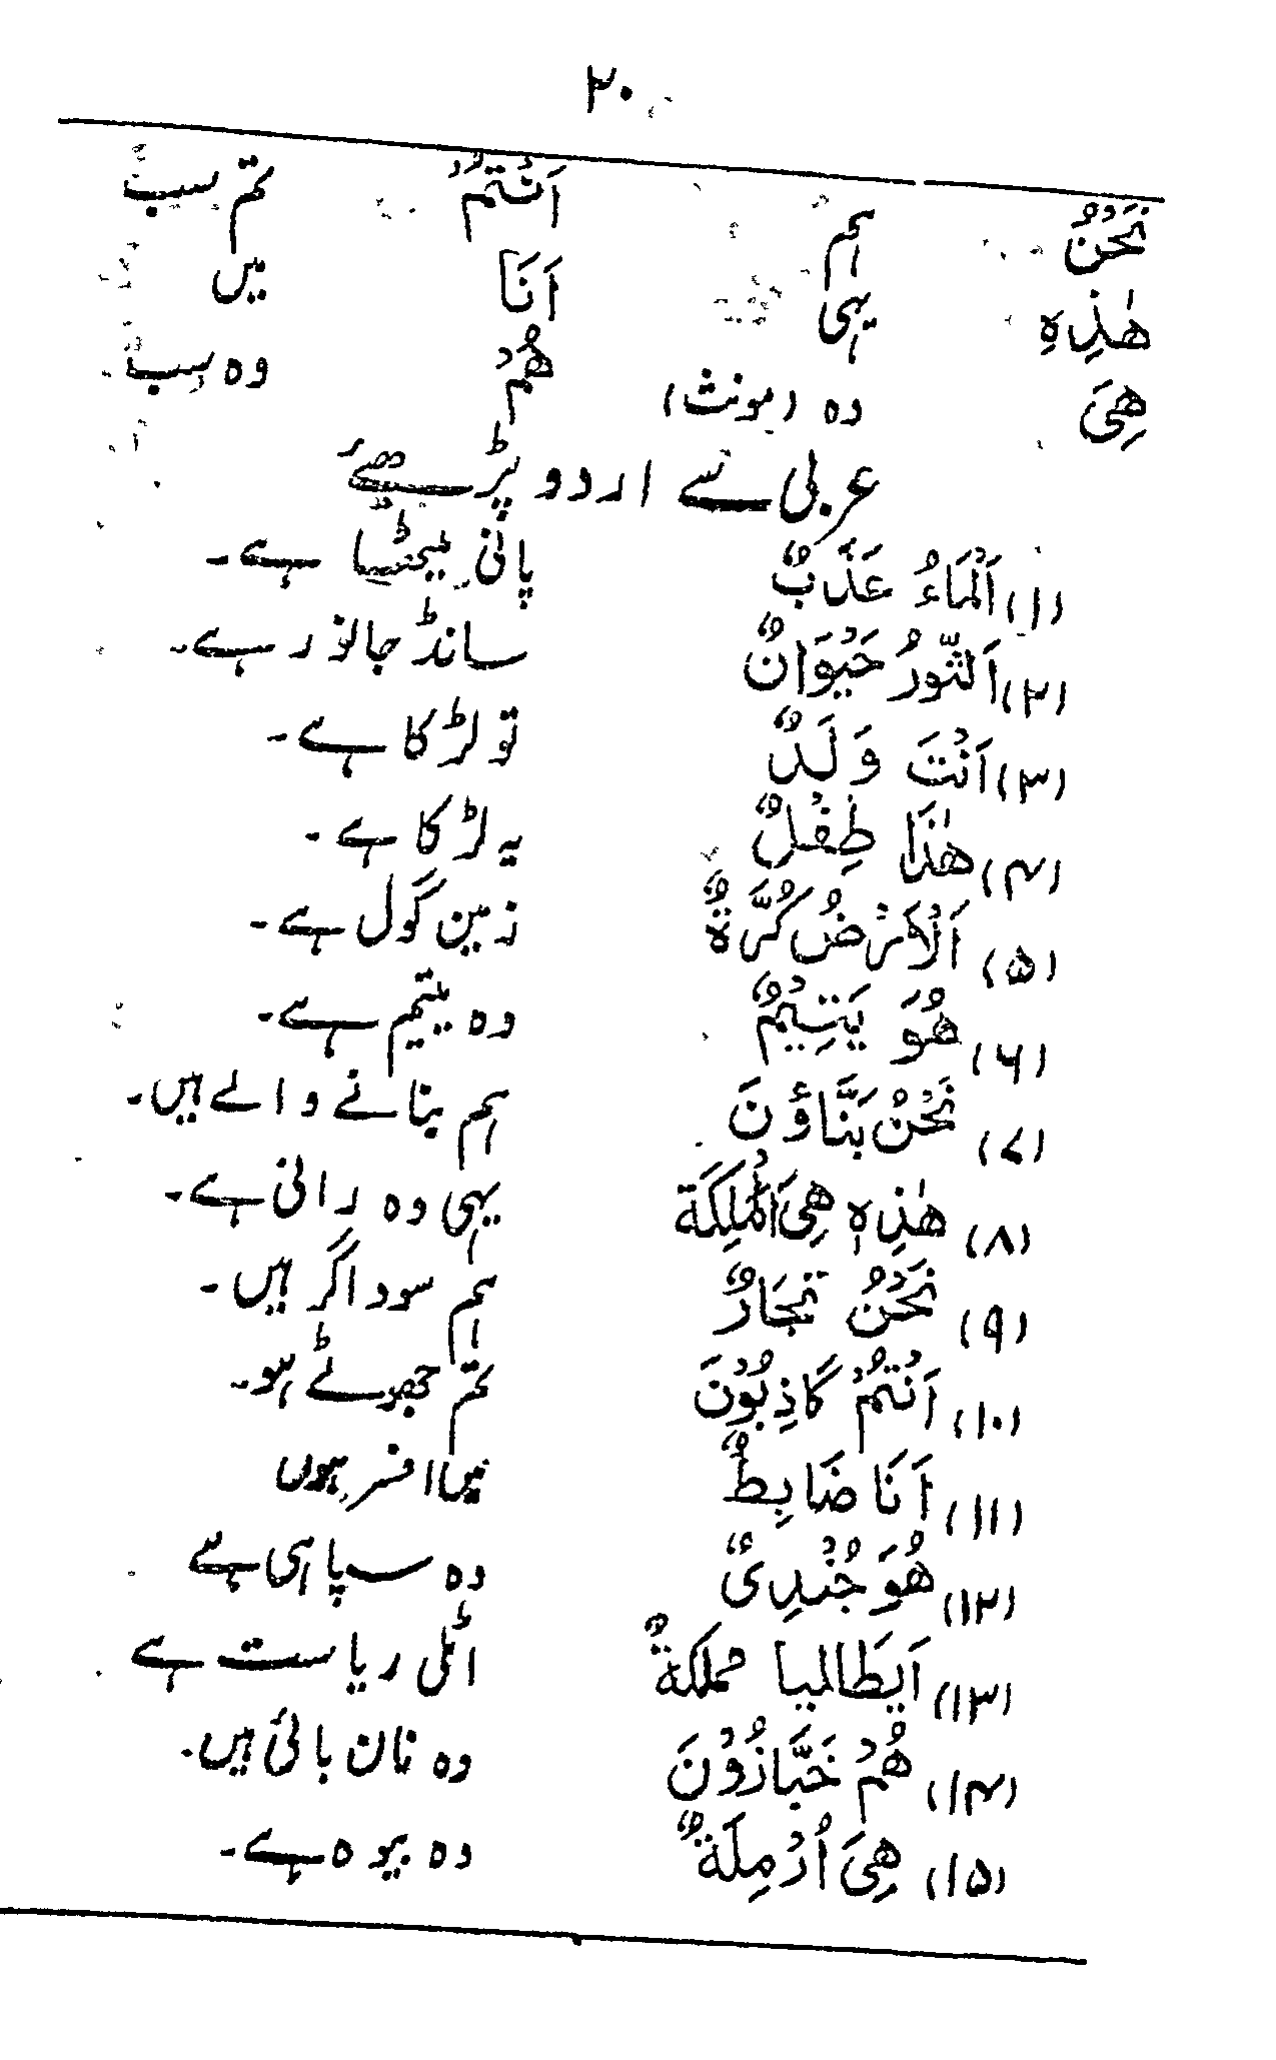 ۲۰
نَحْنُ ہم اَنْتُمْ تم سب
هٰذِهِ یہی اَنَا میں
هِیَ وہ (مونث) هُمْ وہ سب
عربی سے اردو پڑھیئے
(۱) اَلْمَاءُ عَذَبٌ پانی میٹھا ہے۔
(۲) اَلثَّورُ حَیْوَانٌ سانڈ جانور ہے۔
(۳) اَنْتَ وَلَدٌ تو لڑکا ہے۔
(۴) هٰذَا طِفْلٌ یہ لڑکا ہے۔
(۵) اَلْاَرْضُ کُرَّةٌ زمین گول ہے۔
(۶) هُوَ یَتِیْمٌ وہ یتیم ہے۔
(۷) نَحْنُ بَنَّاؤنَ ہم بنانے والے ہیں۔
(۸) هٰذِهٖ هِیَ الْمَلِکَة یہی وہ رانی ہے۔
(۹) نَحْنُ تجَارٌ ہم سوداگر ہیں۔
(۱۰) اَنْتُمْ کَاذِبُوْنَ تم جھوٹے ہو۔
(۱۱) اَنَا ضَابِطٌ میں افسر ہوں
(۱۲) هُوَ جُنْدِیٌ وہ سپاہی ہے
(۱۳) اَیطَالمیا مملکةٌ اٹلی ریاست ہے
(۱۴) هُمْ خَبَّازُوْنَ وہ نان بائی ہیں۔
(۱۵) هِیَ اُرْمِلَةٌ وہ بیوہ ہے۔